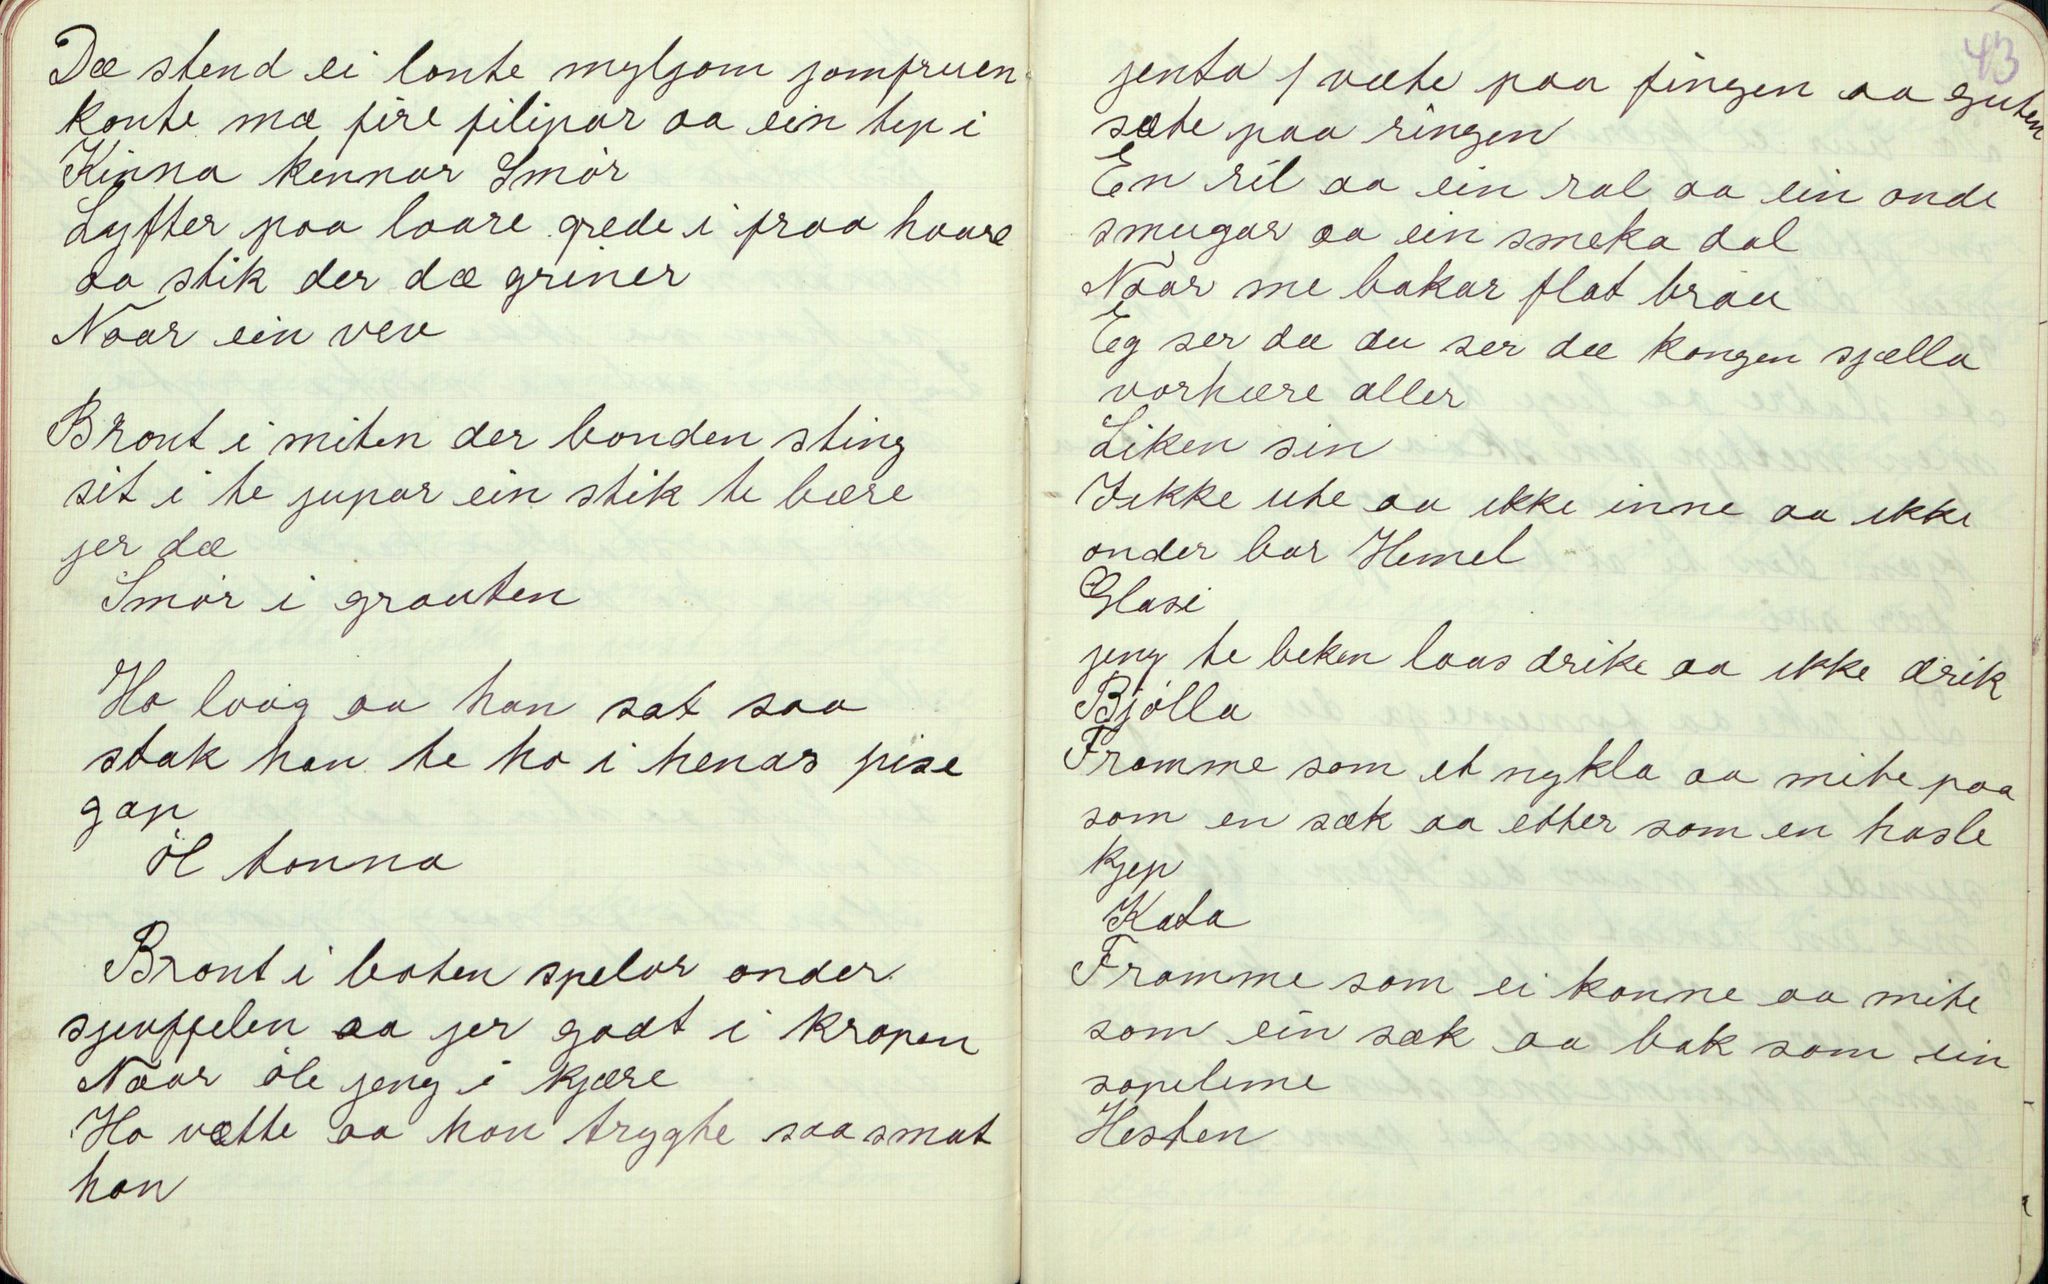 Dæ stend ei lonte myljom jomfruen
konte mæ fire filipar aa ein tep i
Kinna kennar Smør
Lyfter paa laare grede i fraa haare
aa stik der dæ griner
Naar ein vev
Bront i miten der bonden sting
sit i te jupar ein stik te bære
jer dæ
Smør i grauten
Ho laag aa han sat saa
stak han te ho i henars pise
gap
Øl tonna
Bront i boten spelar onder
sjeuffelen aa jer godt i kropen
Naar øle jeng i kjære
Ho vætte aa han tryghte saa smat
han
43
jenta / væte paa fingen aa guten
sæte paa ringen
En ril aa ein ral aa ein onde
smugar aa ein smeka dal
Naar me bakar flat brau
Eg ser dæ du ser dæ kongen sjælla
vorhære aller
Liken sin
Ikke ute aa ikke inne aa ikke
onder bar Hemel
Glasi
jeng te beken laas drike aa ikke drik
Bjølla
Framme som et nykla aa mite paa
som en sæk aa etter som en hasle
kjep
Kata
Framme som ei konne aa mite
som ein sæk aa bak som ein
sopelime
Hesten